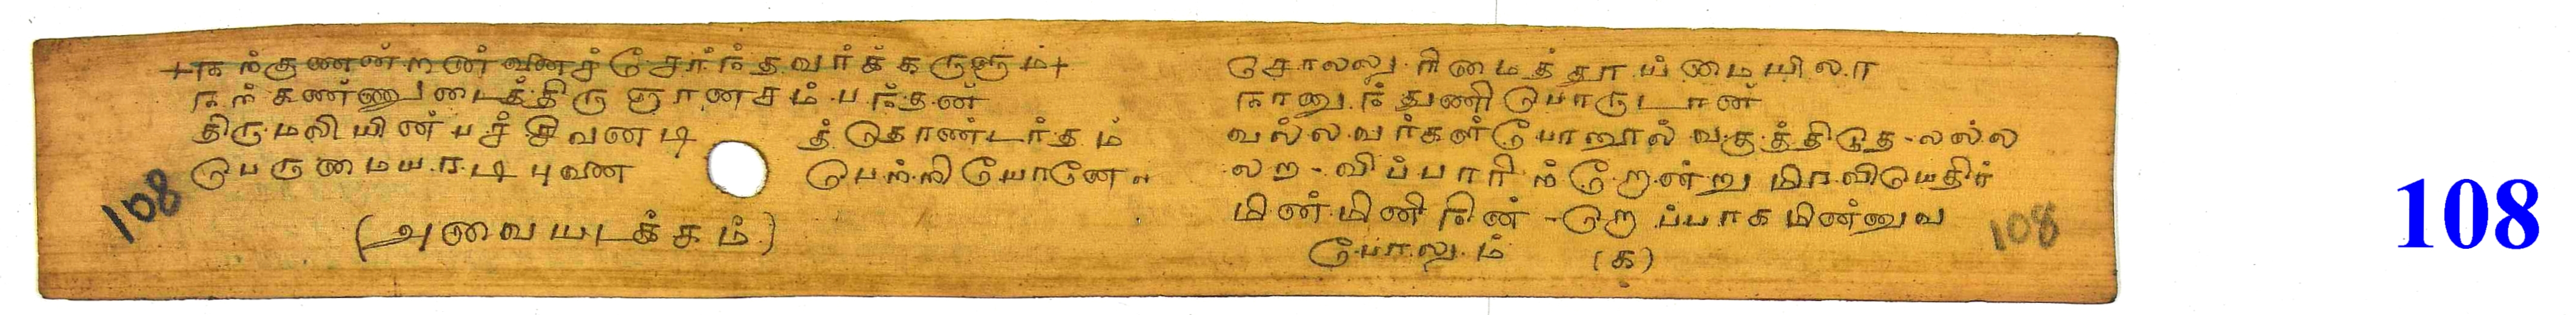 +நற்குணன்றன் வினச்சேர்ந்தவர்க்கருளும்+
நற்கண்ணுடைத்திருஞானசம்பந்தன்
திருமலியின்பச் சிவனடி த்தொண்டர்தம்
பெருமையாடி புவன பெற்றியோனே
(அவையடக்கம்)
சொலலு ரிமைத் தூய்மையிலா
நானு ந் துணி பொருடான்
வல்லவர்கள்போனூல் வகுத்திடுத-லல்ல
லற-விப்பாரிற் றேன்று மாவிடயதிர்
மின்மினி நின்-றொப்பாக மின்னுவ
போலும் (க)
108
108
108